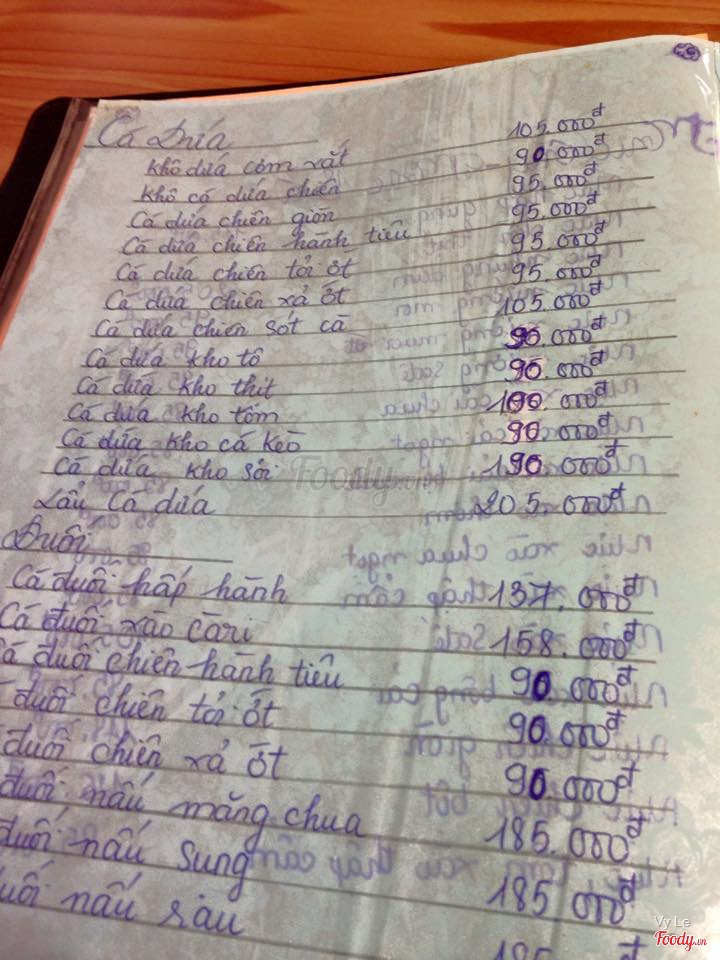 Cá Dứa
Khô dứa cơm xắt 105.000đ
Khô cá dứa chiên 90.000đ
Cá dứa chiên giòn 95.000đ
Cá dứa chiên hành tiêu 95.000đ
Cá dứa chiên tỏi ớt 95.000đ
Cá dứa chiên xả ớt 95.000đ
Cá dứa chiên sốt cà 105.000đ
Cá dứa kho tộ 90.000đ
Cá dứa kho thịt 90.000đ
Cá dứa kho tôm 100.000đ
Cá dứa kho cá kèo 90.000đ
Cá dứa kho 190.000đ
Lẩu Cá dứa 205.000đ
Đuối
Cá đuối hấp hành 137.000đ
Cá đuối xào cari 158.000đ
Cá đuối chiên hành tiêu 90.000đ
đuối chiên tỏi ớt 90.000đ
đuối chiên xả ớt 90.000đ
đuối nấu măng chua 185.000đ
đuối nấu sung 185.000đ
đuối nấu rau
Foody.vn
Vy Le
Foody.vn